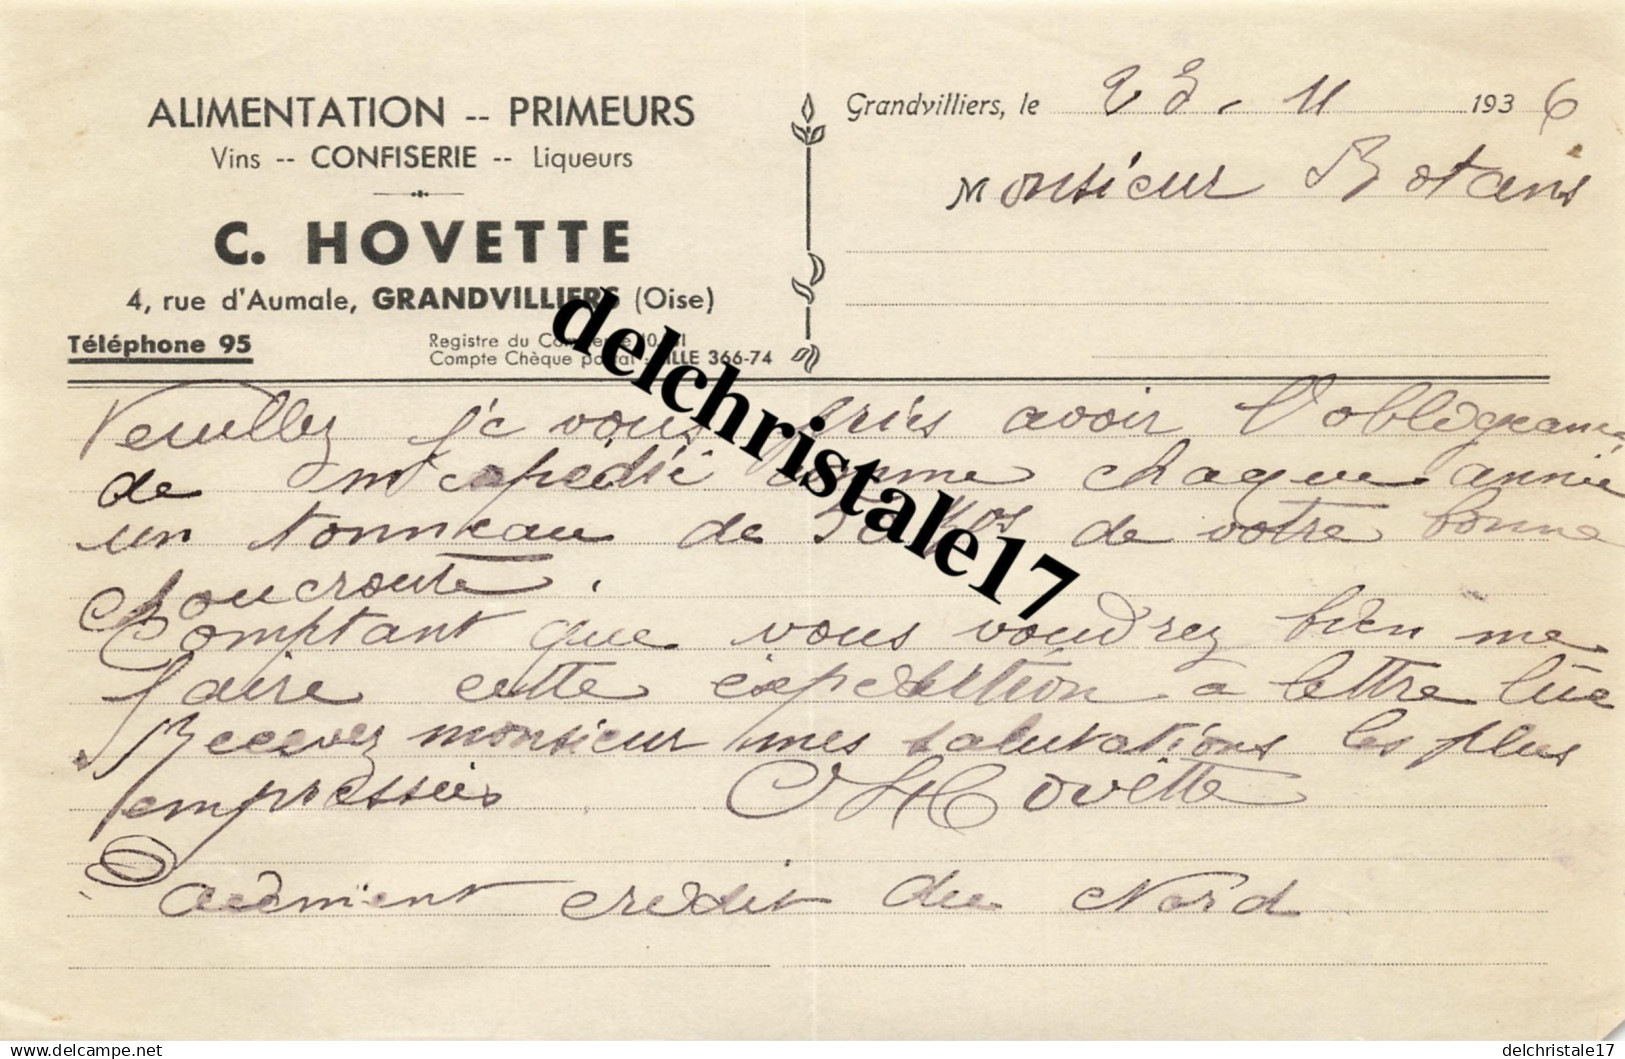 ALIMENTATION -- PRIMEURS
Vins -- CONFISERIE -- Liqueurs
C. HOVETTE
4, rue d'Aumale, GRANDVILLIERS (Oise)
Téléphone 95
Registre du Commerce
Compte Chèque postal - LILLE 366-74
Grandvilliers, le 23 - 11 1936
Monsieur
Veuillez je vous pries avoir l'obligeance
de m'expédié comme chaque année
un tonneau de 50 Kos de votre bonne
choucroute.
Comptant que vous voudrez bien me
faire cette expédition a lettre lue
Recevez monsieur mes salutations les plus
empressées CHovette
Paiement credit du Nord
delchristale17
delchristale17